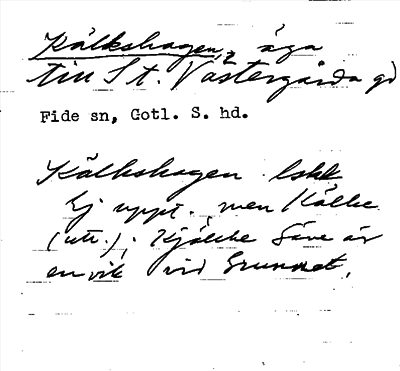 Kälkshagen, äga
till St. Västergårda gd
Fide sn, Gotl. S. hd.
Kälkshagen lskk
Ej uppt., men Kälke
(utt.); Kjälke Säve är
en vik vid Grunnet.